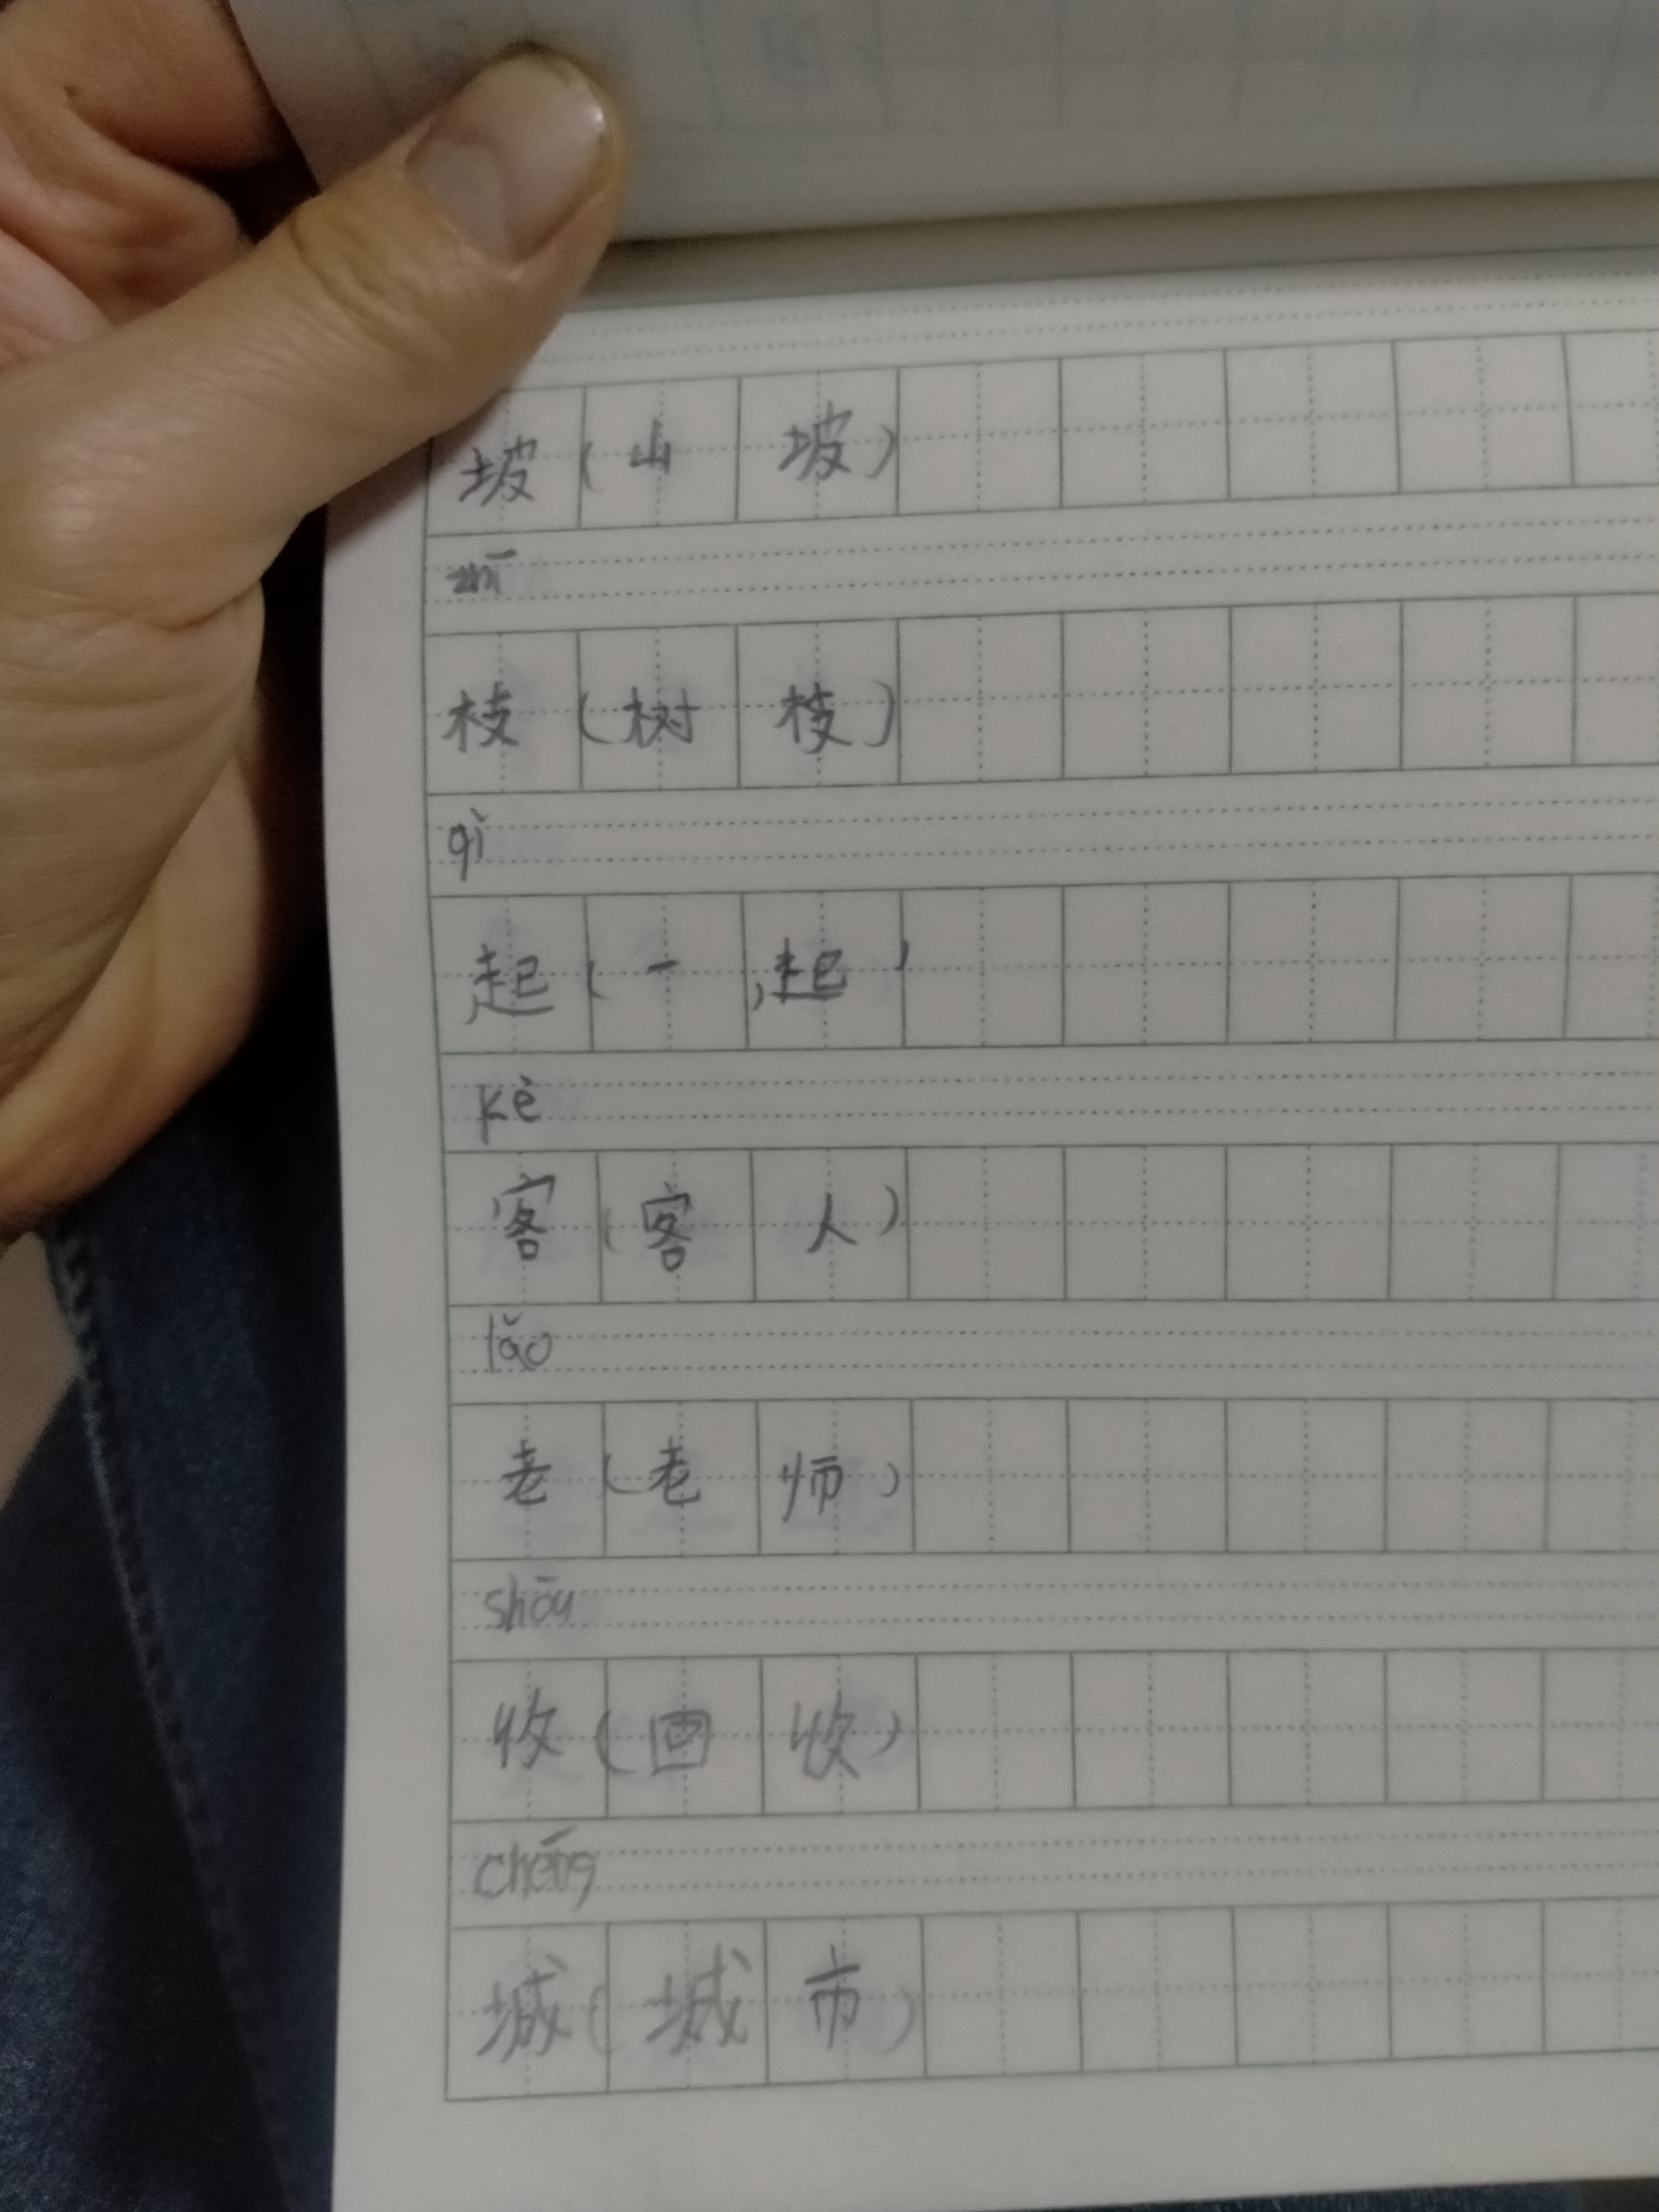 坡(山坡)
zhī
枝(树枝)
qì
起(一起)
kè
客(客人)
lǎo
老(老师)
shōu
收(回收)
chéng
城(城市)